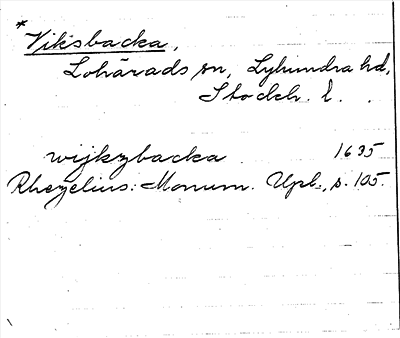 *Viksbacka,
Lohärads sn, Lyhundra hd,
Stockh. l.
wijkzbacka 1635
Rhezelius: Monum. Upl., s. 105.